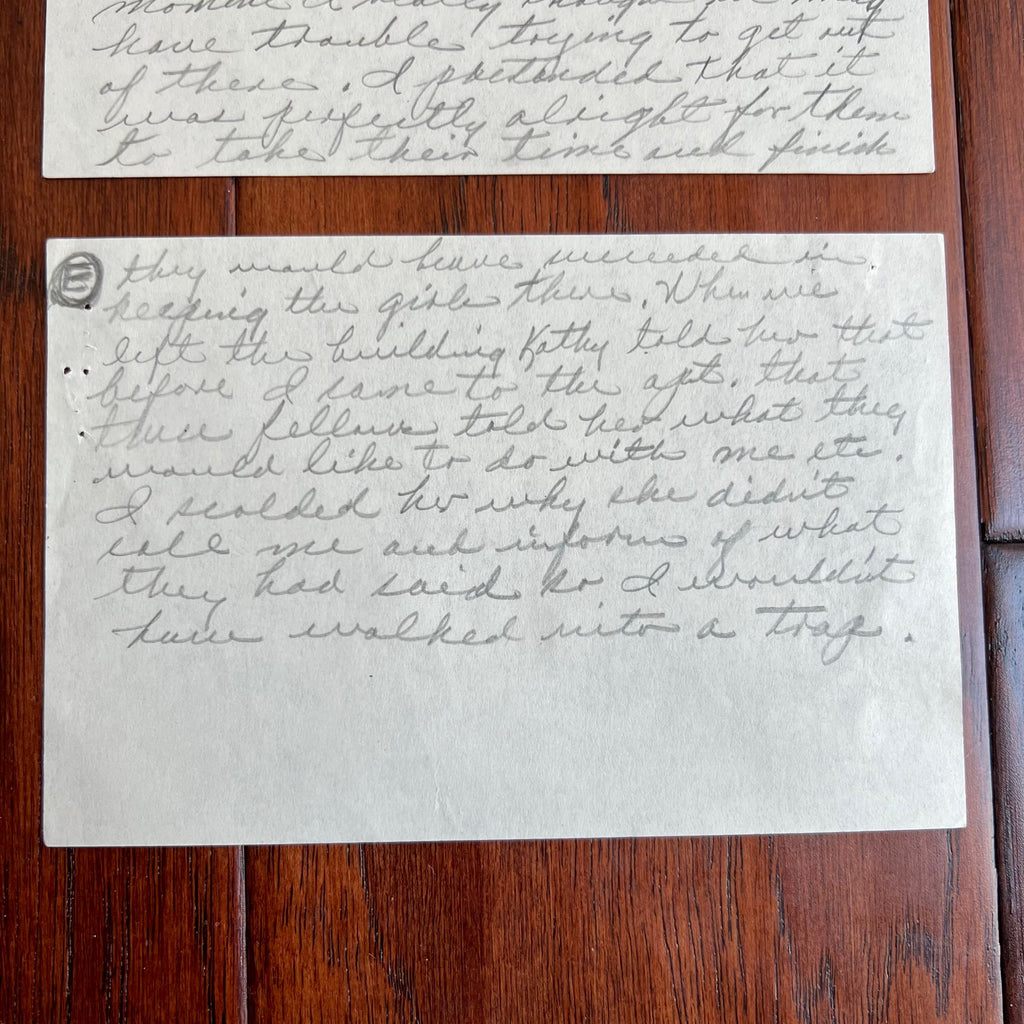 moment I really thought we may
have trouble trying to get out
of there. I pretended that it
was perfectly alright for them
to take their time and finish
E
they would have succeeded in
keeping the girls there. When we
left the building Kathy told her that
before I came to the apt. that
these fellows told her what they
would like to do with me etc.
I scolded her why she didn't
call me and inform of what
they had said so I wouldn't
have walked into a trap.